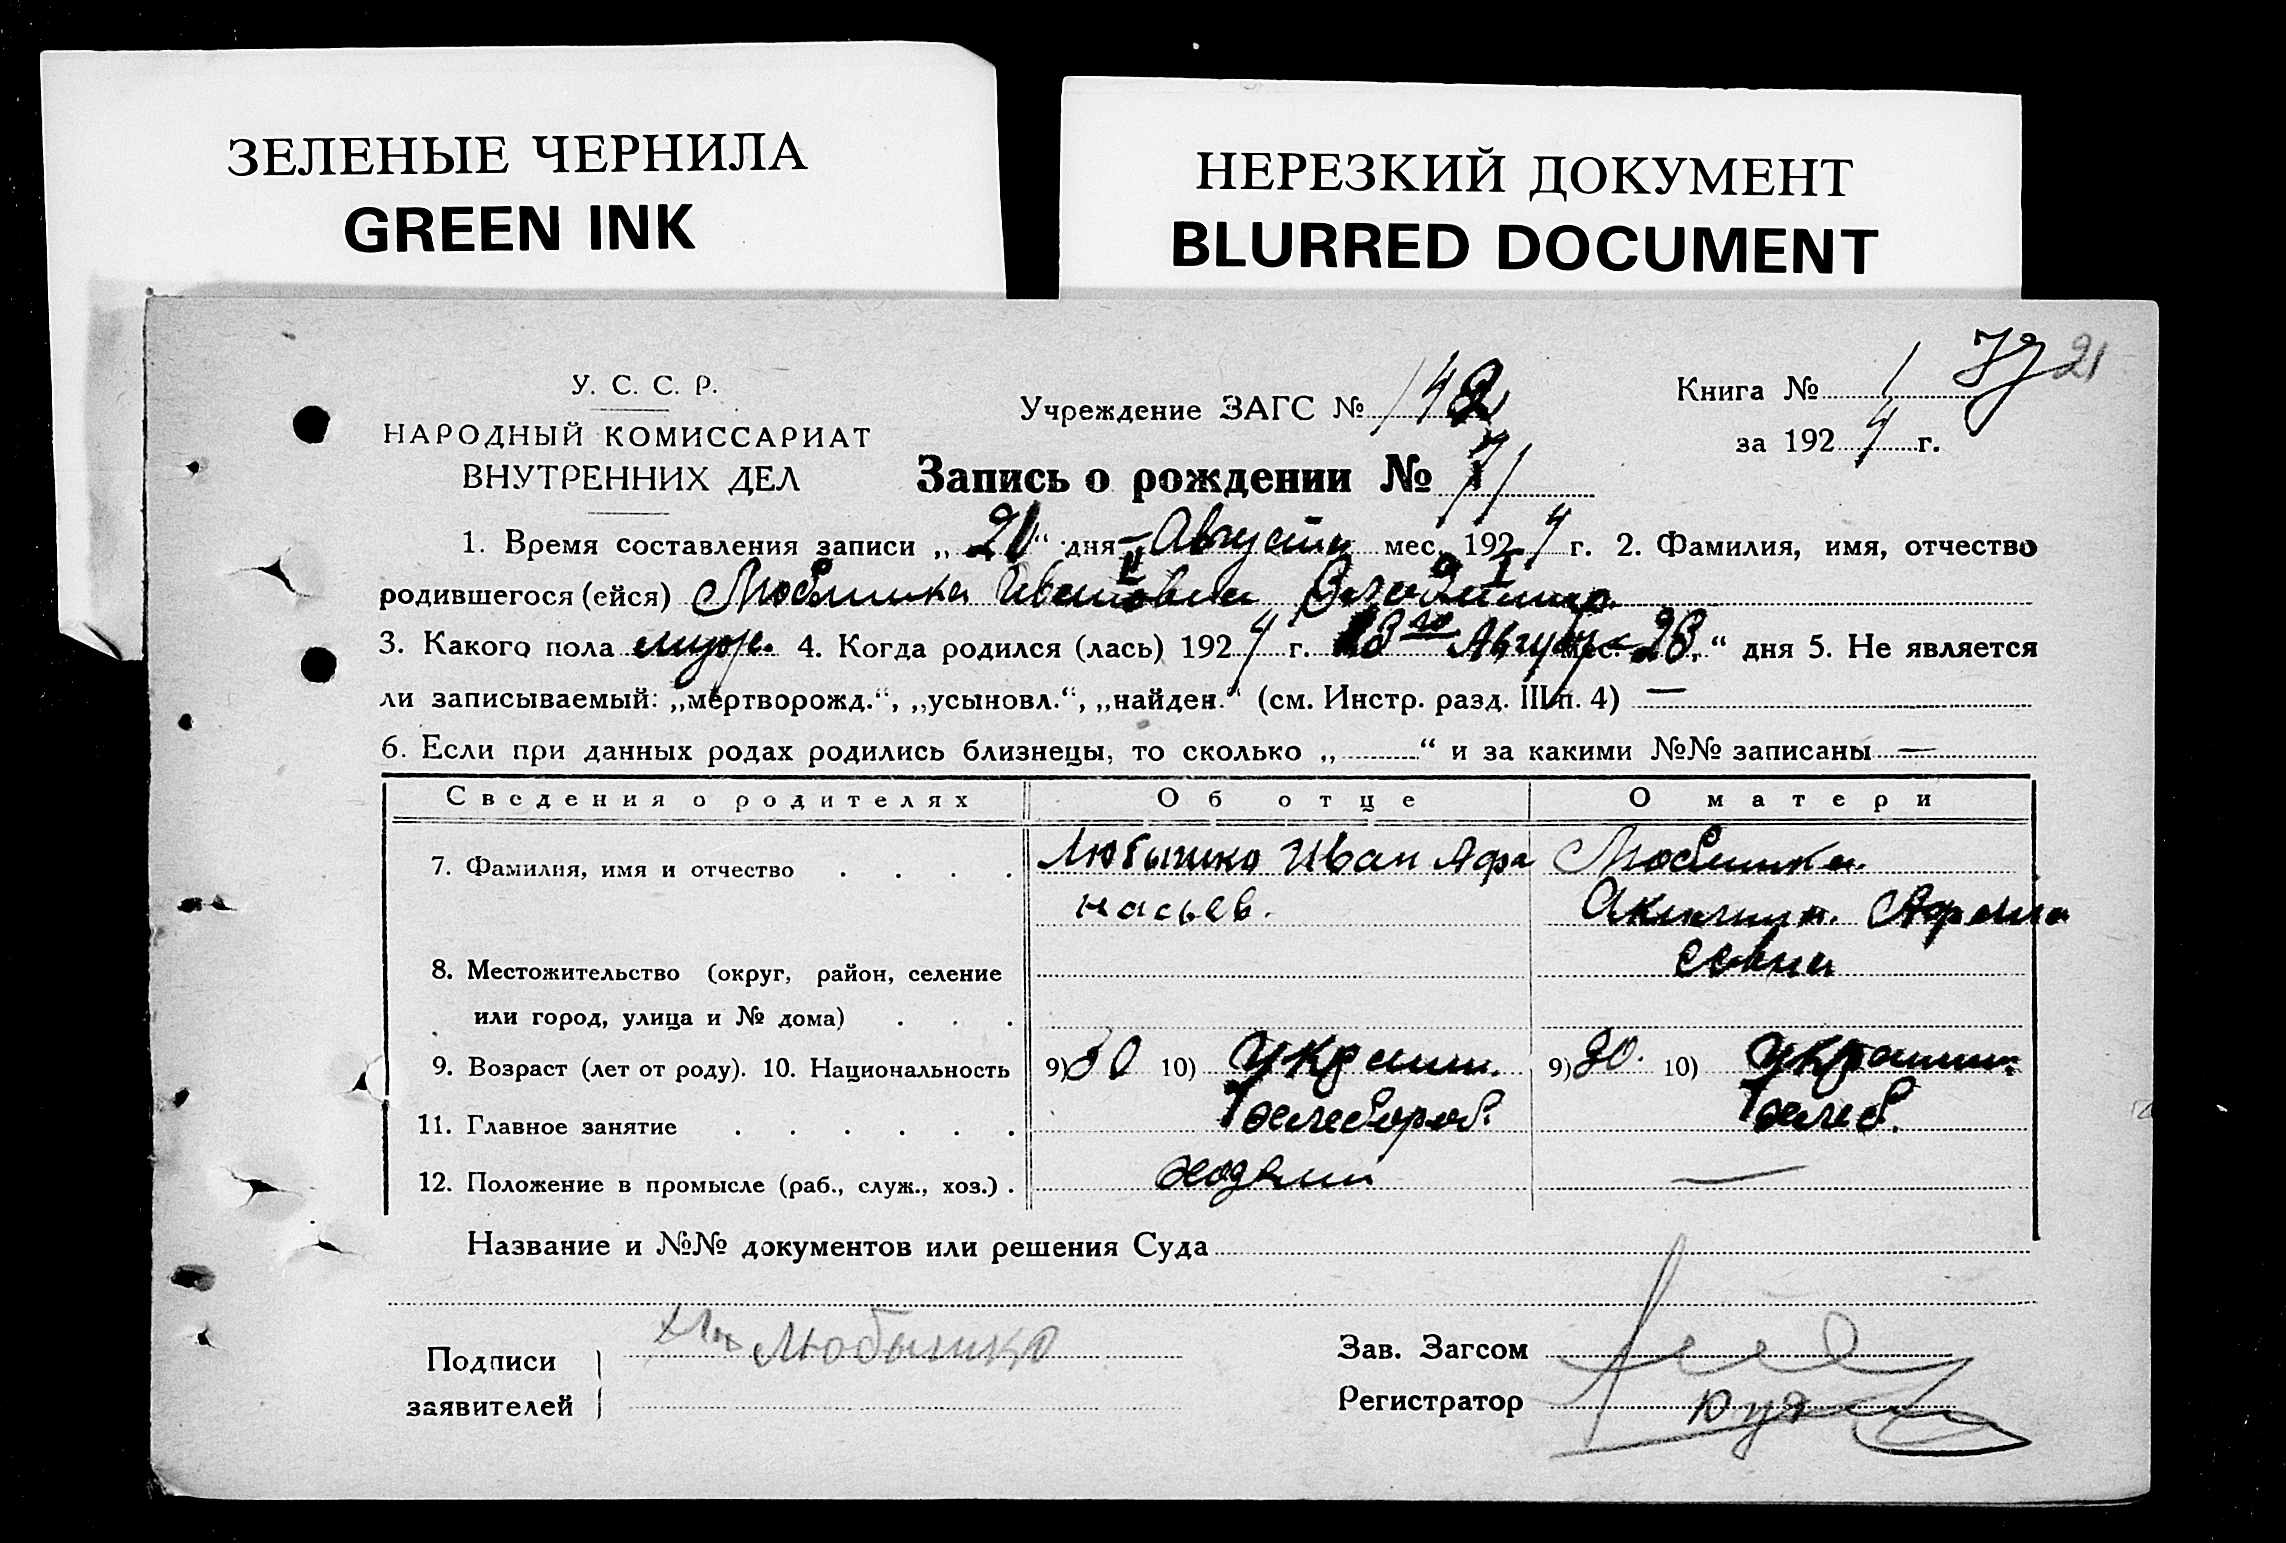 ЗЕЛЕНЫЕ ЧЕРНИЛА
GREEN INK
НЕРЕЗКИЙ ДОКУМЕНТ
BLURRED DOCUMENT
21
У. С. С. Р.
НАРОДНЫЙ КОМИССАРИАТ
ВНУТРЕННИХ ДЕЛ
Учреждение ЗАГС № 142
Книга № 1
за 1924 г.
Запись о рождении № 71
1. Время составления записи „21“ дня Августа мес. 1924 г. 2. Фамилия, имя, отчество
родившегося (ейся) Любишка Иванович Владимир
3. Какого пола муж. 4. Когда родился (лась) 1924 г. Август мес. „ “ дня 5. Не является
ли записываемый: „мертворожд.“, „усыновл.“, „найден.“ (см. Инстр. разд. III п. 4) —
6. Если при данных родах родились близнецы, то сколько „ “ и за какими №№ записаны —
Сведения о родителях Об отце О матери
7. Фамилия, имя и отчество Любишко Иван Афа
насьев.
Любишка
Афана
севна
8. Местожительство (округ, район, селение
или город, улица и № дома)
9. Возраст (лет от роду). 10. Национальность 9) 30 10) Украин. 9) 30. 10) Украин.
11. Главное занятие хлебороб. хлеб.
12. Положение в промысле (раб., служ., хоз.) хозяин —
Название и №№ документов или решения Суда
Подписи
заявителей
Любышко
Зав. Загсом
Регистратор